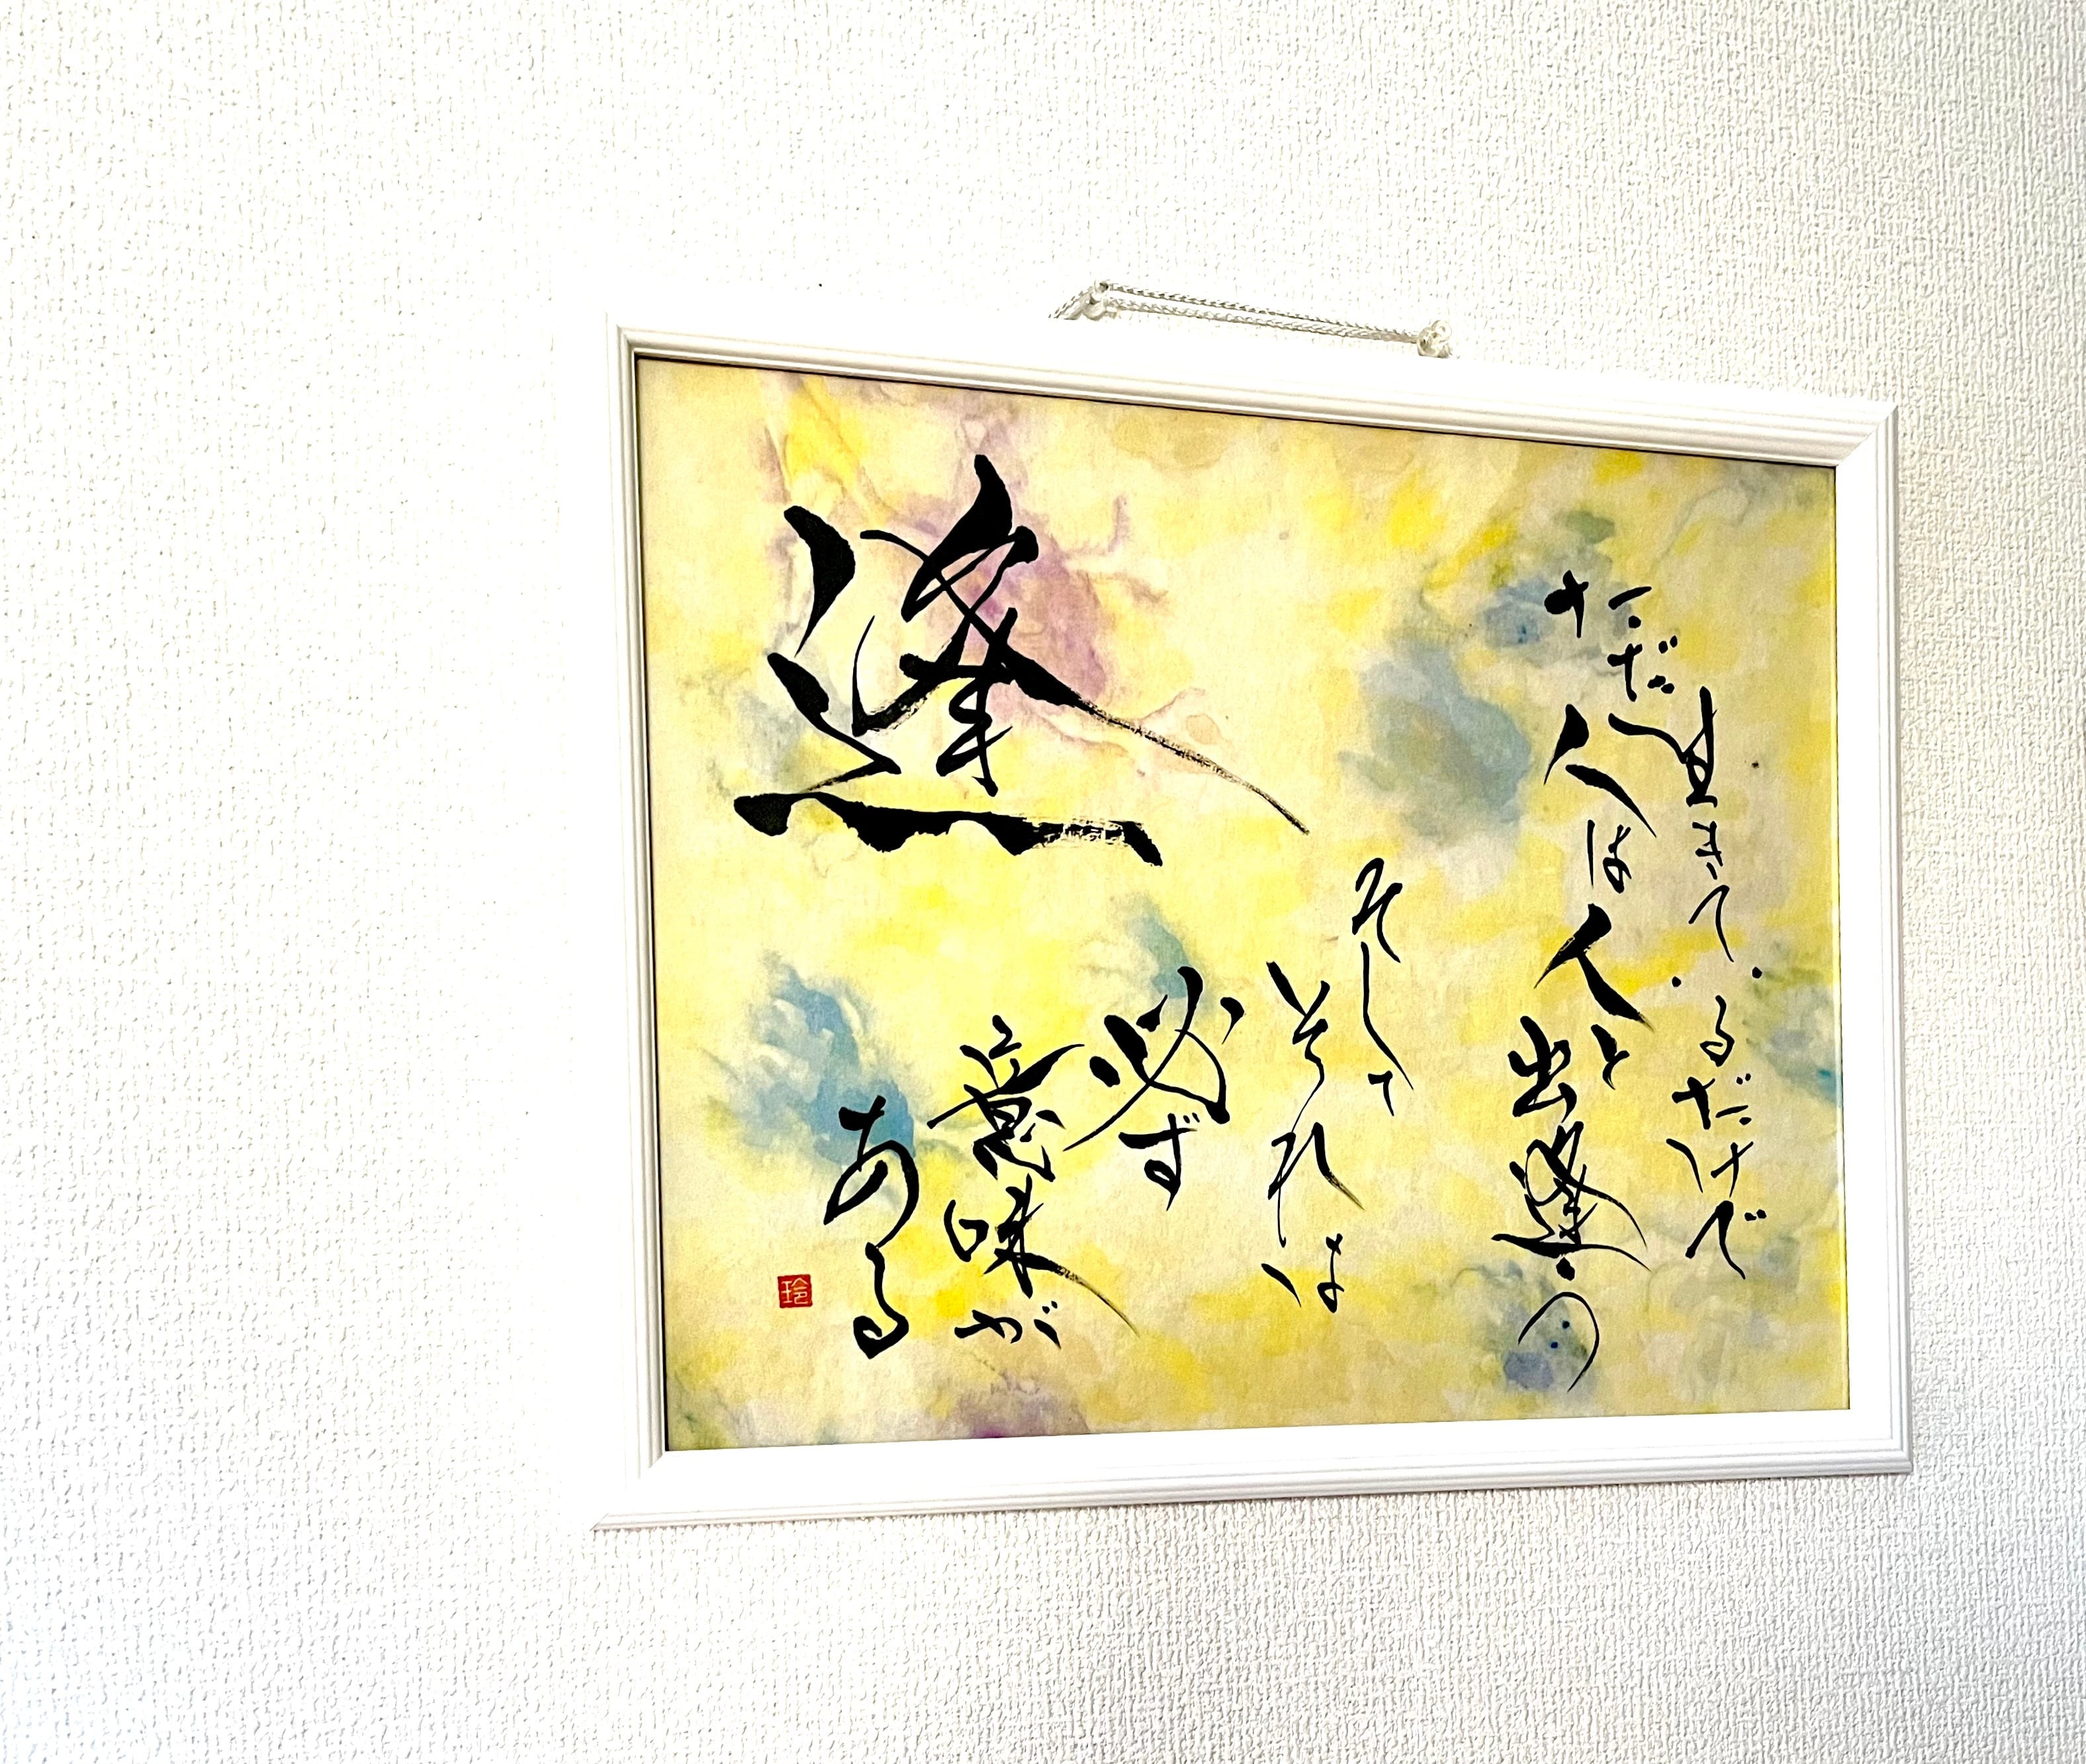 ただ
生きてるだけで
人は人と出逢う
そして
それは
必ず
意味が
ある
逢
玲